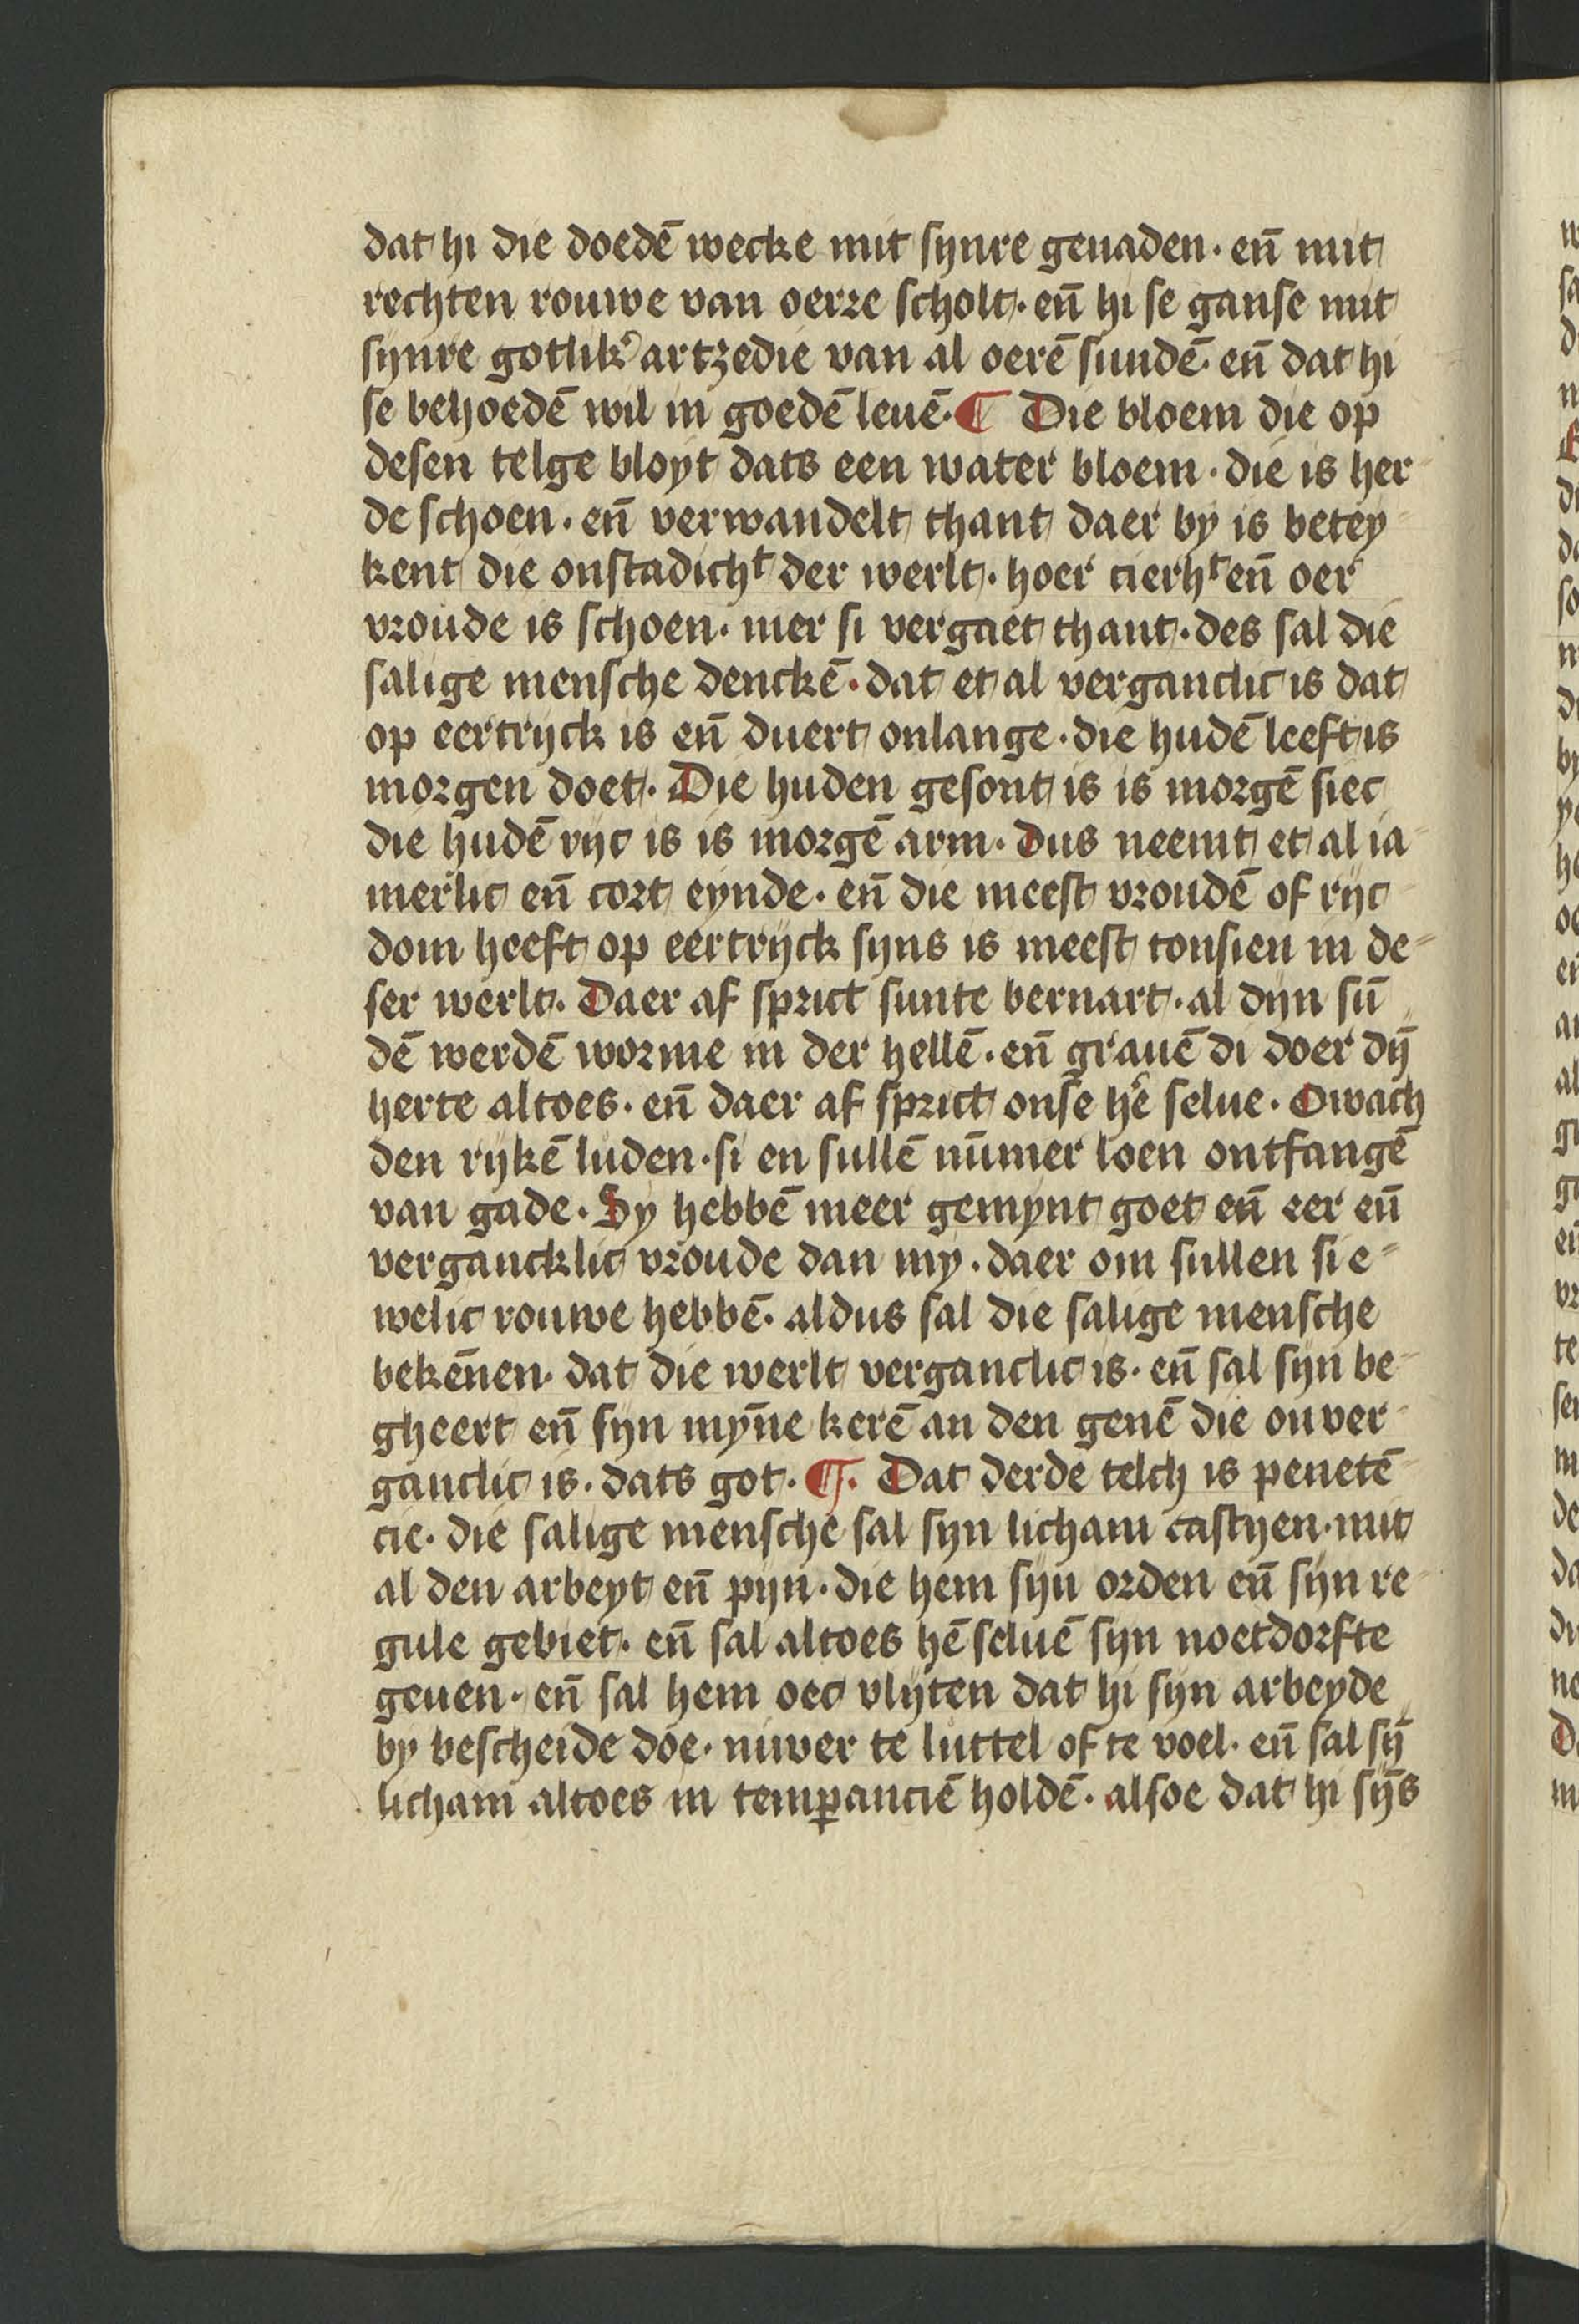 dat hi die doedē wecke mit ſynre genaden · en̄ mit
rechten rouwe van oerre ſcholt · en̄ hi ſe ganſe mit
ſynre gotlik᾿ artzedie van al oerē ſundē · en̄ dat hi
ſe behoedē wil in goedē leuē · ¶ Die bloem die op
deſen telge bloyt dats een water bloem · die is her-
de ſchoen · en̄ verwandelt thant daer by is betey-
kent die onſtadichᵗ der werlt · hoer cierhᵗ en̄ oer
vroude is ſchoen · mer ſi vergaet thant · des ſal die
ſalige menſche denckē · dat et al verganclic is dat
op eertryck is en̄ duert onlange · die hudē leeft is
morgen doet · Die huden geſont is is morgē ſiec
die hudē ryc is is morgē arm · Dus neemt et al ia-
merlic en̄ cort eynde · en̄ die meeſt vroudē of ryc-
dom heeft op eertryck ſyns is meeſt tonſien in de-
ſer werlt · Daer af ſprict ſunte bernart · al dyn ſū
dē werdē worme in der hellē · en̄ grauē di doer dȳ
herte altoes · en̄ daer af ſprict onſe hē ſelue · Owach
den rykē luden · ſi en ſullē nūmer loen ontfangē
van gade · Sy hebbē meer gemynt goet en̄ eer en̄
vergancklic vroude dan my · daer om ſullen ſi e-
welic rouwe hebbē · aldus ſal die ſalige menſche
bekēnen · dat die werlt verganclic is · en̄ ſal ſyn be-
gheert en̄ ſyn mȳne kerē an den genē die onver-
ganclic is · dats got · ¶ · Dat derde telch is penetē-
cie · die ſalige menſche ſal ſyn licham caſtyen · mit
al den arbeyt en̄ pyn · die hem ſyn orden en̄ ſyn re-
gule gebiet · en̄ ſal altoes hē ſeluē ſyn noetdorfte
geuen · en̄ ſal hem oec vlyten dat hi ſyn arbeyde
by beſcheide doe · niwer te luttel of te voel · en̄ ſal ſȳ
licham altoes in temꝑanciē holdē · alſoe dat hi ſȳs